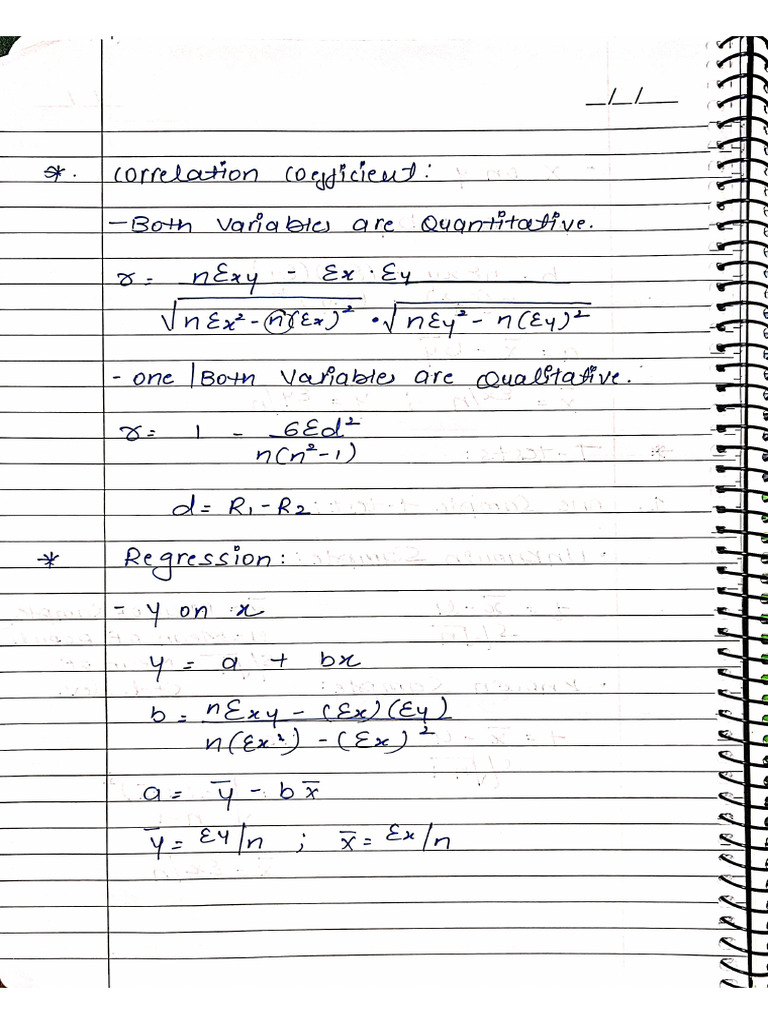 _/_/__
*. Correlation Coefficient:
- Both Variables are Quantitative.
r = nΣxy - Σx · Σy
√nΣx² - n(Σx)² · √nΣy² - n(Σy)²
- one / Both Variables are Qualitative.
r = 1 - 6Σd²
n(n²-1)
d = R₁ - R₂
* Regression:
- y on x
y = a + bx
b = nΣxy - (Σx)(Σy)
n(Σx²) - (Σx)²
a = ȳ - bx̄
ȳ = Σy/n ; x̄ = Σx/n